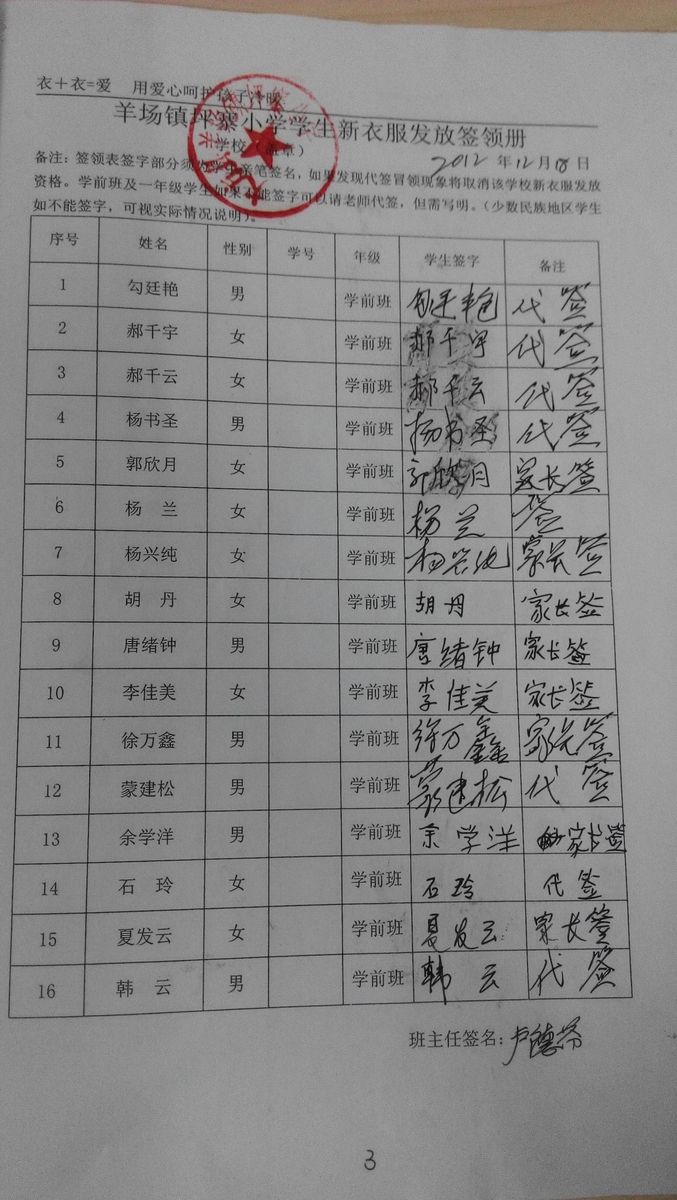 衣＋衣=爱 用爱心呵护孩子冷暖
羊场镇坪寨小学学生新衣服发放签领册
学校（盖章） 2012 年 12 月 18 日
备注：签领表签字部分须为学生亲笔签名，如果发现代签冒领现象将取消该学校新衣服发放
资格。学前班及一年级学生如果不能签字可以请老师代签，但需写明。（少数民族地区学生
如不能签字，可视实际情况说明）。
序号 姓名 性别 学号 年级 学生签字 备注
1 勾廷艳 男 学前班 勾廷艳 代签
2 郝千宇 女 学前班 郝千宇 代签
3 郝千云 女 学前班 郝千云 代签
4 杨书圣 男 学前班 杨书圣 代签
5 郭欣月 女 学前班 郭欣月 家长签
6 杨 兰 女 学前班 杨兰 签
7 杨兴纯 女 学前班 杨兴纯 家长签
8 胡 丹 女 学前班 胡丹 家长签
9 唐绪钟 男 学前班 唐绪钟 家长签
10 李佳美 女 学前班 李佳美 家长签
11 徐万鑫 男 学前班 徐万鑫 家长签
12 蒙建松 男 学前班 蒙建松 代签
13 余学洋 男 学前班 余学洋 家长签
14 石 玲 女 学前班 石玲 代签
15 夏发云 女 学前班 夏发云 家长签
16 韩 云 男 学前班 韩云 代签
班主任签名：卢德芬
3